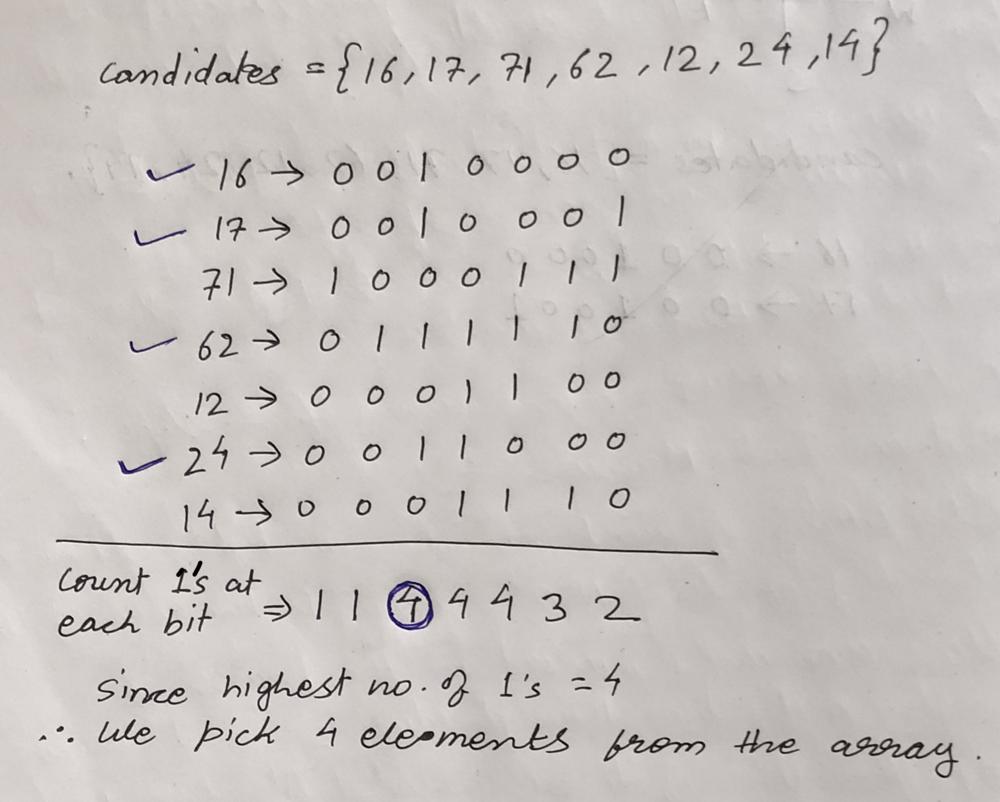 candidates = {16, 17, 71, 62, 12, 24, 14}
✓ 16 → 0 0 1 0 0 0 0
✓ 17 → 0 0 1 0 0 0 1
71 → 1 0 0 0 1 1 1
✓ 62 → 0 1 1 1 1 1 0
12 → 0 0 0 1 1 0 0
✓ 24 → 0 0 1 1 0 0 0
14 → 0 0 0 1 1 1 0
Count 1's at
each bit ⇒ 1 1 4 4 4 3 2
Since highest no. of 1's = 4
∴ We pick 4 elements from the array.